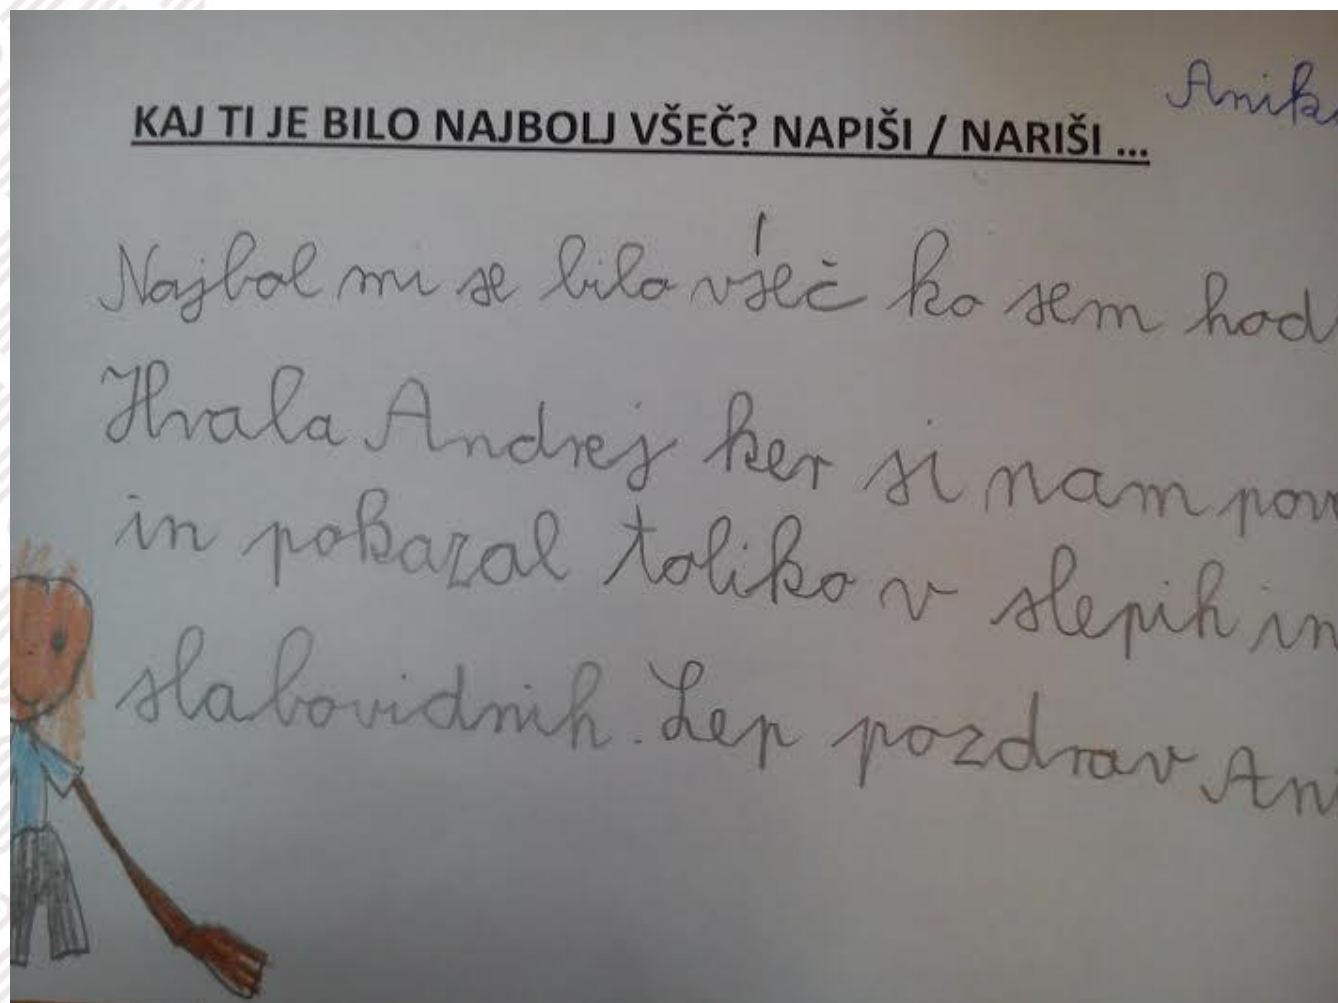 Anik
KAJ TI JE BILO NAJBOLJ VŠEČ? NAPIŠI / NARIŠI ...
Najbol mi se bilo všeč ko sem hod
Hvala Andrej ker si nam pov
in pokazal toliko v slepih in
slabovidnih. Lep pozdrav An